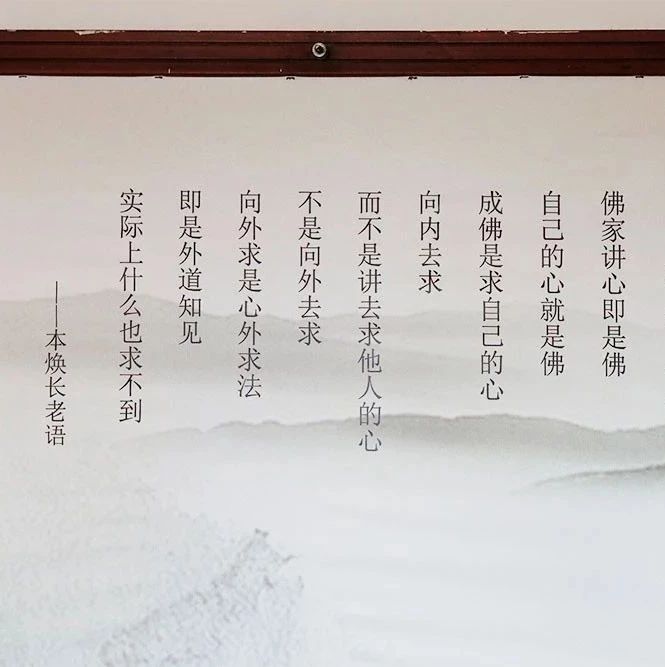 佛家讲心即是佛
自己的心就是佛
成佛是求自己的心
向内去求
而不是讲去求他人的心
不是向外去求
向外求是心外求法
即是外道知见
实际上什么也求不到
——本焕长老语